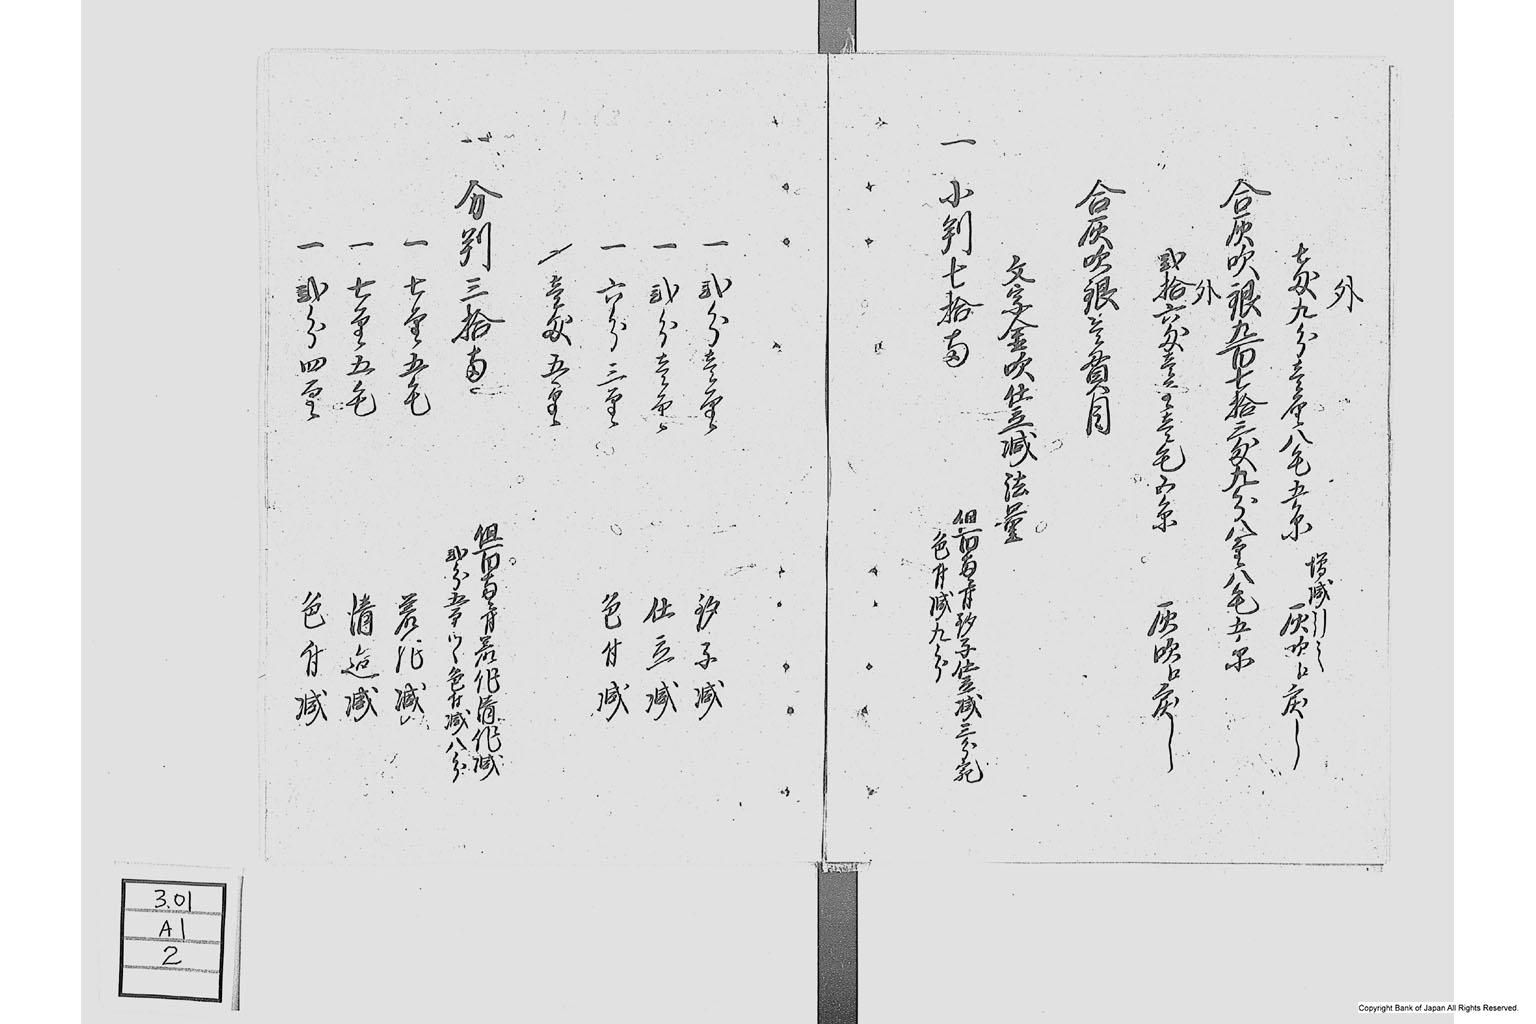 外
七匁九分壱厘八毛五糸 増減引〆
灰吹占戻し
合灰吹銀九百七拾三匁九分八厘八毛五糸
外
弐拾六匁壱厘壱毛五糸 灰吹占戻し
合灰吹銀壱貫目
文字金吹仕立減法量
一 小判七拾両 但百両ニ付砂子仕立減三分宛
色付減九分
一 弐分壱厘 砂子減
一 弐分壱厘 仕立減
一 六分三厘 色付減
〆壱匁五厘
一 分判三拾両 但百両ニ付荒作清作減
弐分五厘ツヽ色付減八分
一 七厘五毛 荒作減
一 七厘五毛 清造減
一 弐分四厘 色付減
3.01
A1
2
Copyright Bank of Japan All Rights Reserved.